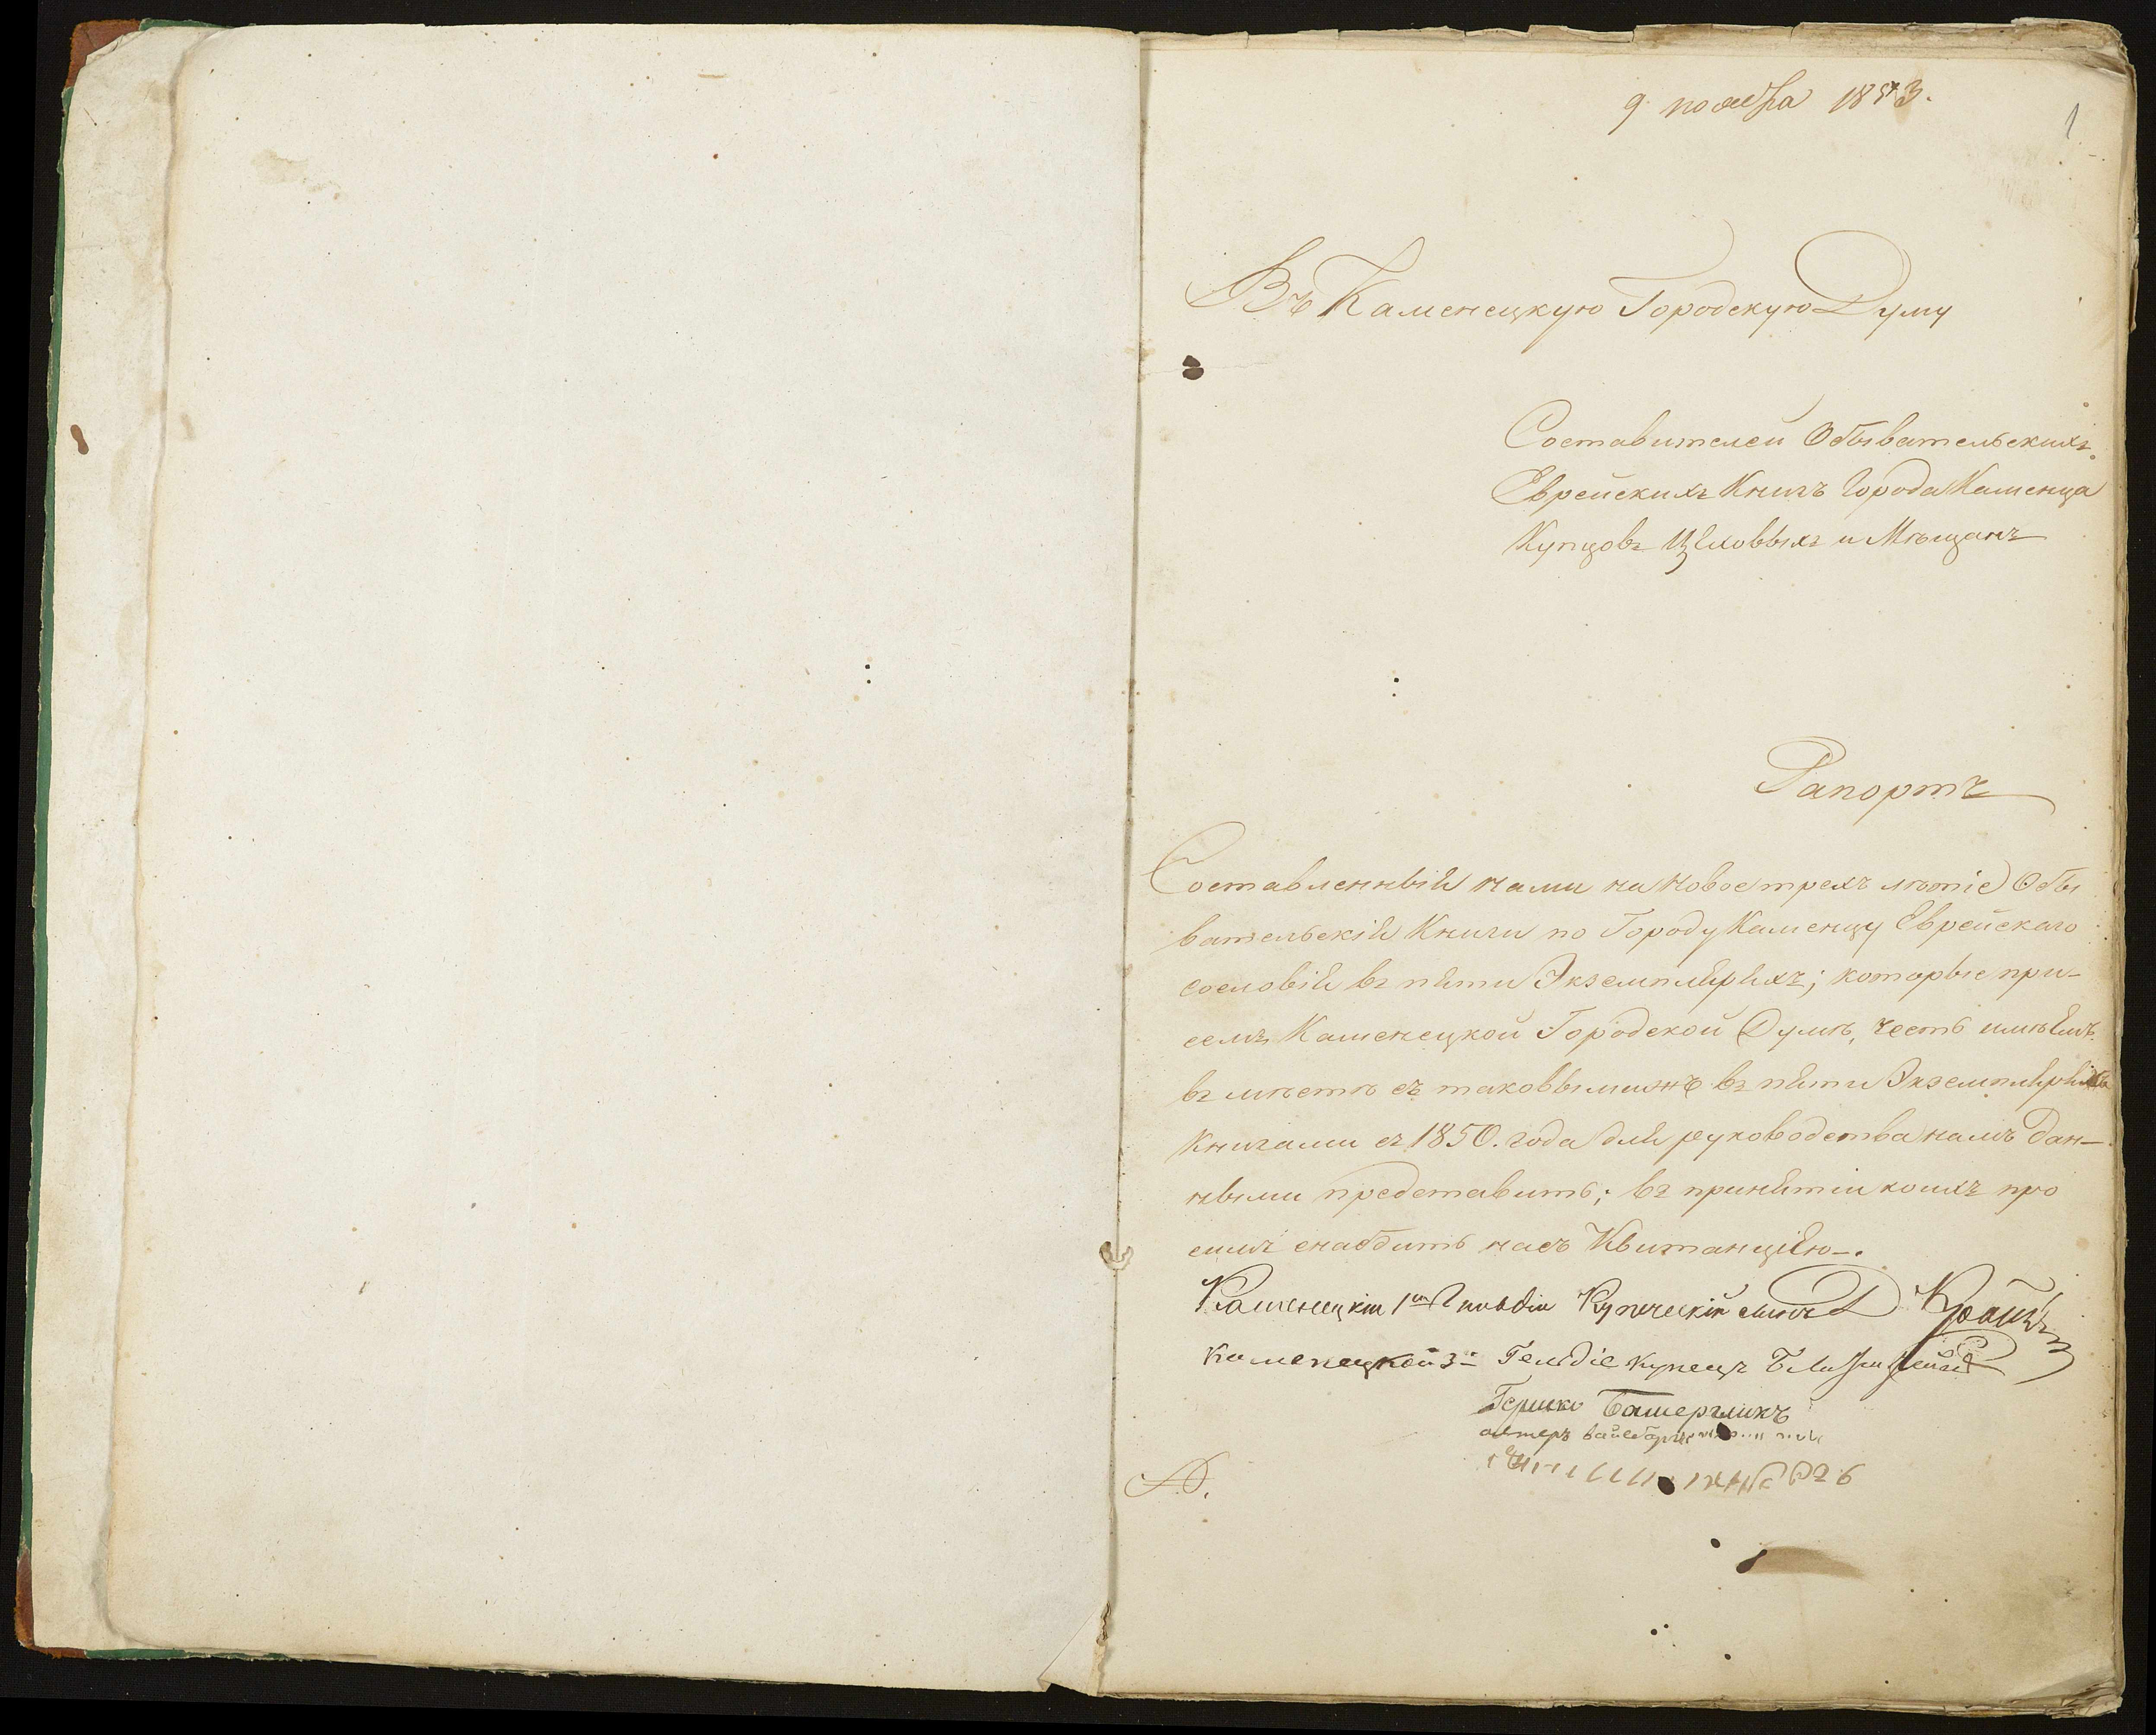 9 ноября 1853.
1
Въ Каменецкую Городскую Думу
Составителей Обывательскихъ
Еврейскихъ Книгъ Города Каменца
Купцовъ Цеховыхъ и Мѣщанъ
Рапортъ
Составленныя нами на новое трехъ лѣтіе Обы
вательскія Книги по Городу Каменцу Еврейскаго
сословія въ пяти Экземплярахъ; которые при-
семъ Каменецкой Городской Думѣ, честь имѣемъ
въ мѣстѣ съ таковымижъ въ пяти Экземплярахъ
Книгами съ 1850. года для руководства намъ дан-
ными представить; въ принятіи коихъ про
симъ снабдить насъ Квитанціею.
Каменецкій 1й Гильдіи Купеческій сынъ
Каменецкой 3й Гельдіе купецъ
Гершко